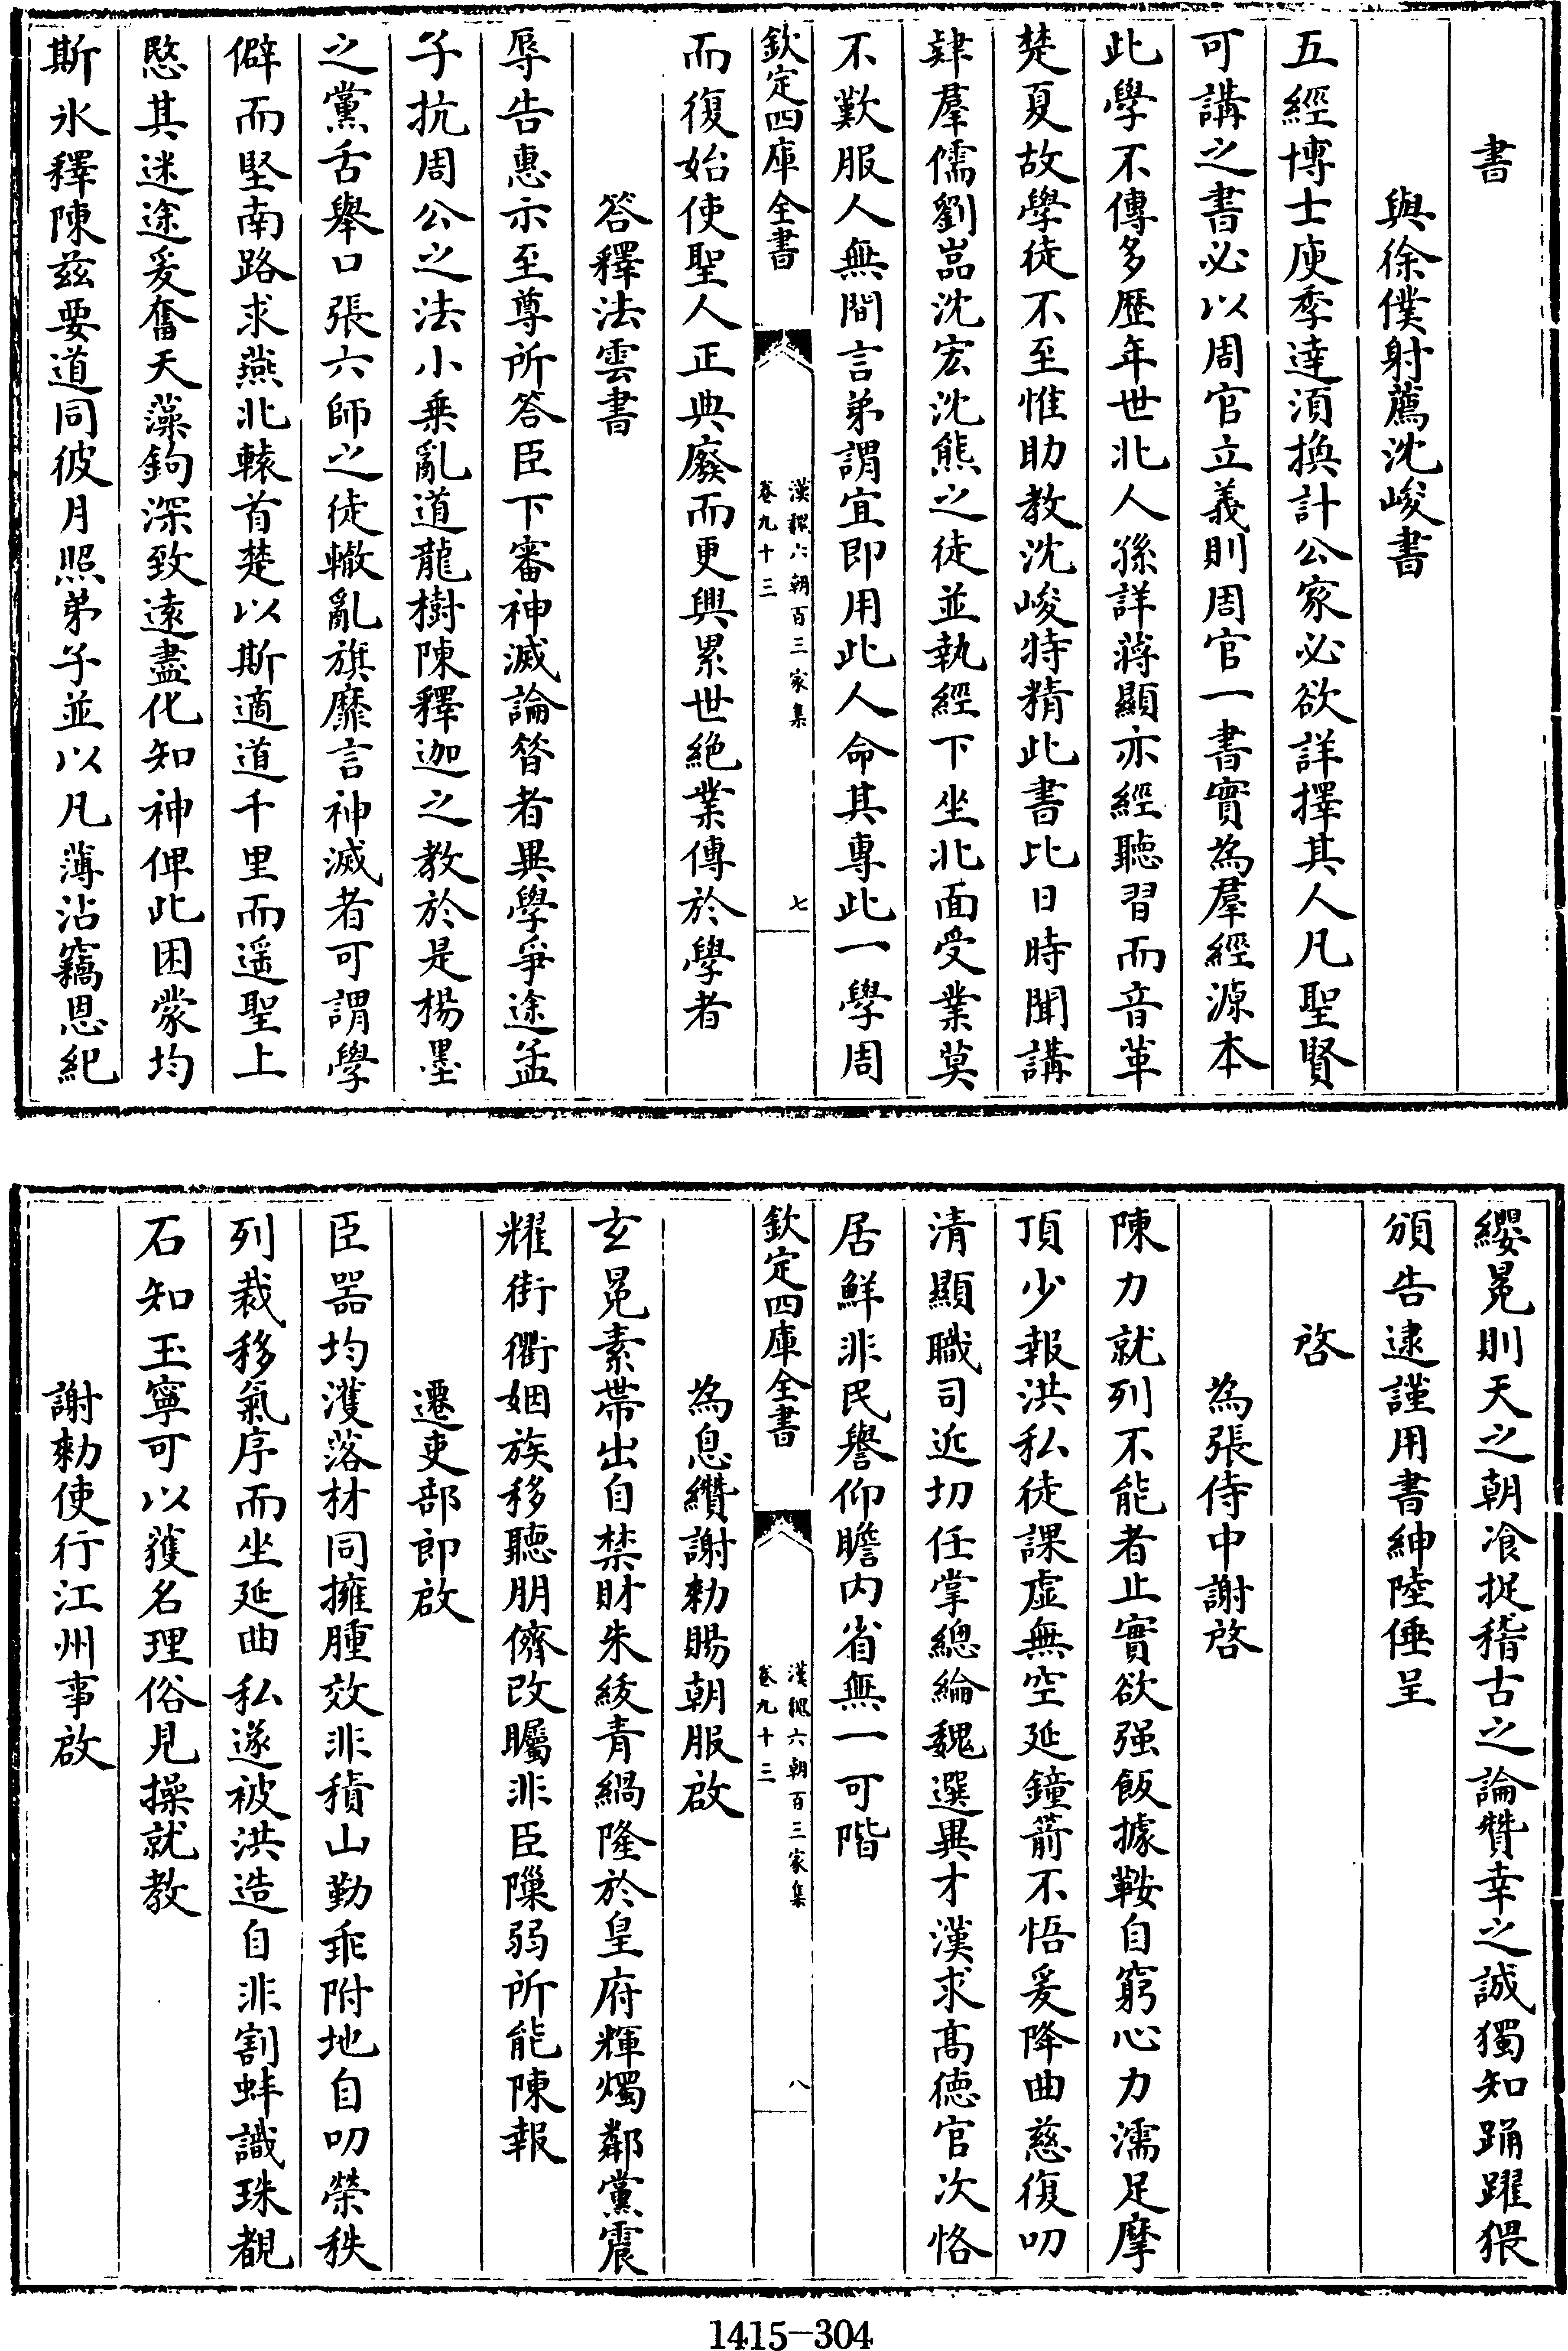 書
與徐僕射薦沈峻書
五經博士庾季達湏換計公家必欲詳擇其人凡聖賢
可講之書必以周官立義則周官一書實為羣經源本
此學不傳多歷年世北人孫詳蔣顯亦經聽習而音革
楚夏故學徒不至惟助教沈峻特精此書比日時聞講
肄羣儒劉嵓沈宏沈熊之徒並執經下坐北面受業莫
不歎服人無間言弟謂宜即用此人命其專此一學周
欽定四庫全書
漢魏六朝百三家集
卷九十三
七
而復始使聖人正典廢而更興累世絶業傳於學者
答釋法雲書
辱告惠示至尊所答臣下審神滅論昝者異學爭途孟
子抗周公之法小乗亂道龍樹陳釋迦之教於是楊墨
之黨舌舉口張六師之徒轍亂旗靡言神滅者可謂學
僻而堅南路求燕北轅首楚以斯適道千里而遥聖上
愍其迷途爰奮天藻鉤深致逺盡化知神俾此困蒙均
斯氷釋陳兹要道同彼月照弟子並以凡薄沾竊恩紀
纓冕則天之朝飡捉稽古之論贊幸之誠獨知踊躍猥
頒告逮謹用書紳陸倕呈
啓
為張侍中謝啓
陳力就列不能者止實欲强飯據鞍自窮心力濡足摩
頂少報洪私徒課虚無空延鐘箭不悟爰降曲慈復叨
清顯職司近切任掌總綸魏選異才漢求髙德官次恪
居鮮非民譽仰瞻内省無一可階
欽定四庫全書
漢魏六朝百三家集
卷九十三
八
為息纘謝勑賜朝服啟
玄冕素帶出自禁財朱綾青緺隆於皇府輝燭鄰黨震
耀街衢姻族移聽朋儕改矚非臣隟弱所能陳報
遷吏部郎啟
臣噐均濩落材同擁腫效非積山勤乖附地自叨榮秩
列裁移氣序而坐延曲私遂被洪造自非割蚌識珠覩
石知玉寧可以獲名理俗見操就教
謝勑使行江州事啟
1415-304